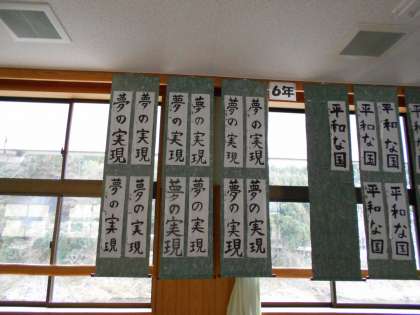 6年
夢の実現
夢の実現
夢の実現
夢の実現
夢の実現
夢の実現
平和な国
平和な国
平和な国
平和な国
夢の実現
夢の実現
夢の実現
夢の実現
夢の実現
夢の実現
平和な国
平和な国